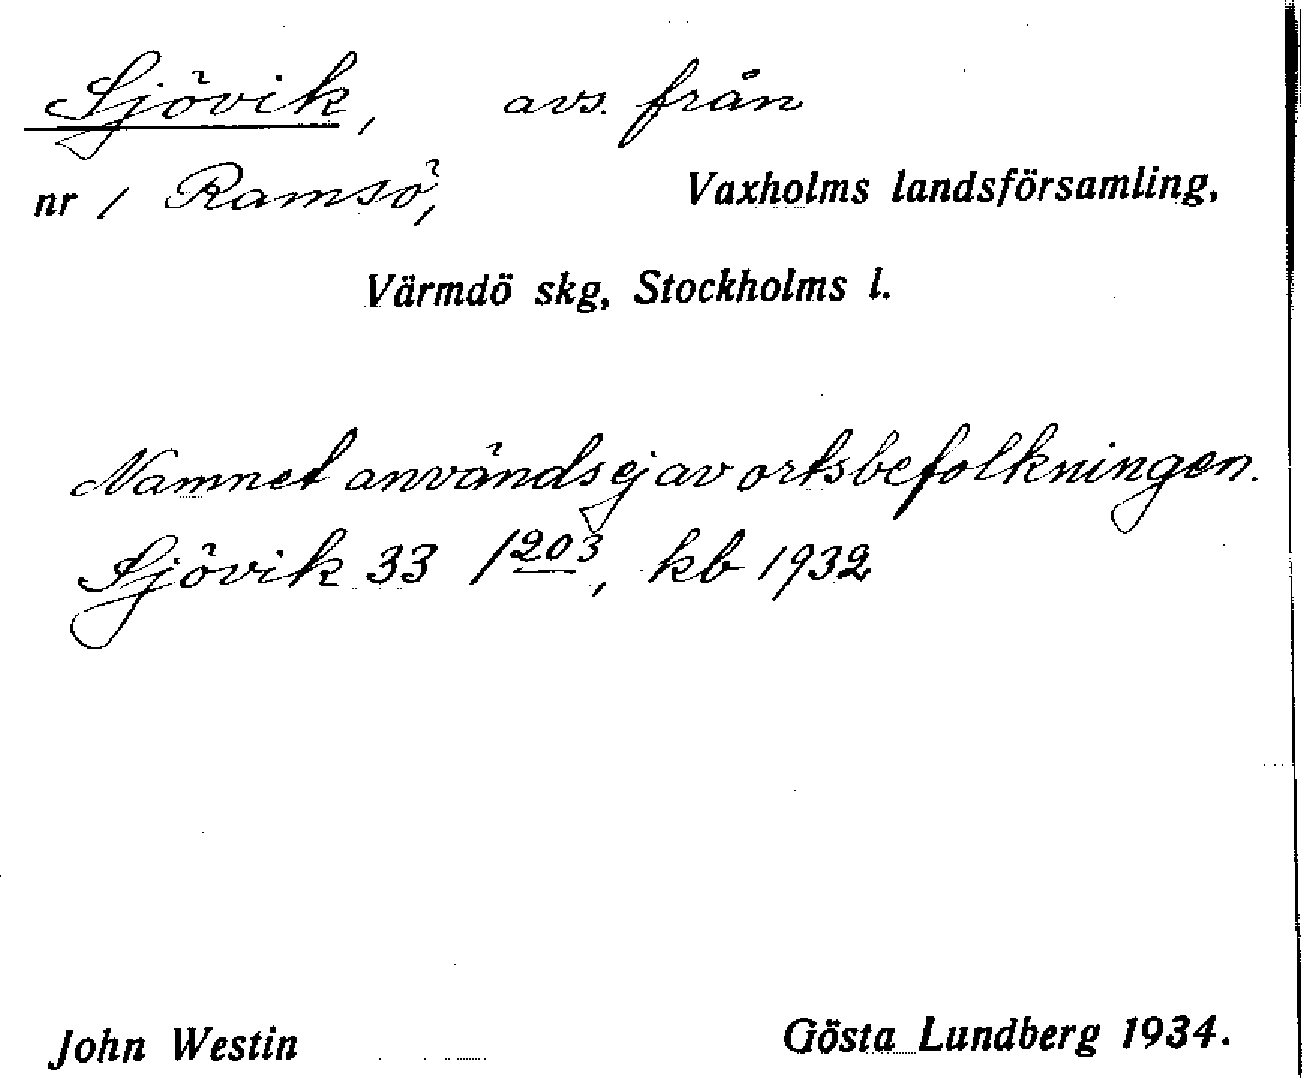 Sjövik, avs. från
nr 1 Ramsö, Vaxholms landsförsamling,
Värmdö skg, Stockholms l.
Namnet används ej av ortsbefolkningen.
Sjövik 33 1203, kb 1932
John Westin Gösta Lundberg 1934.